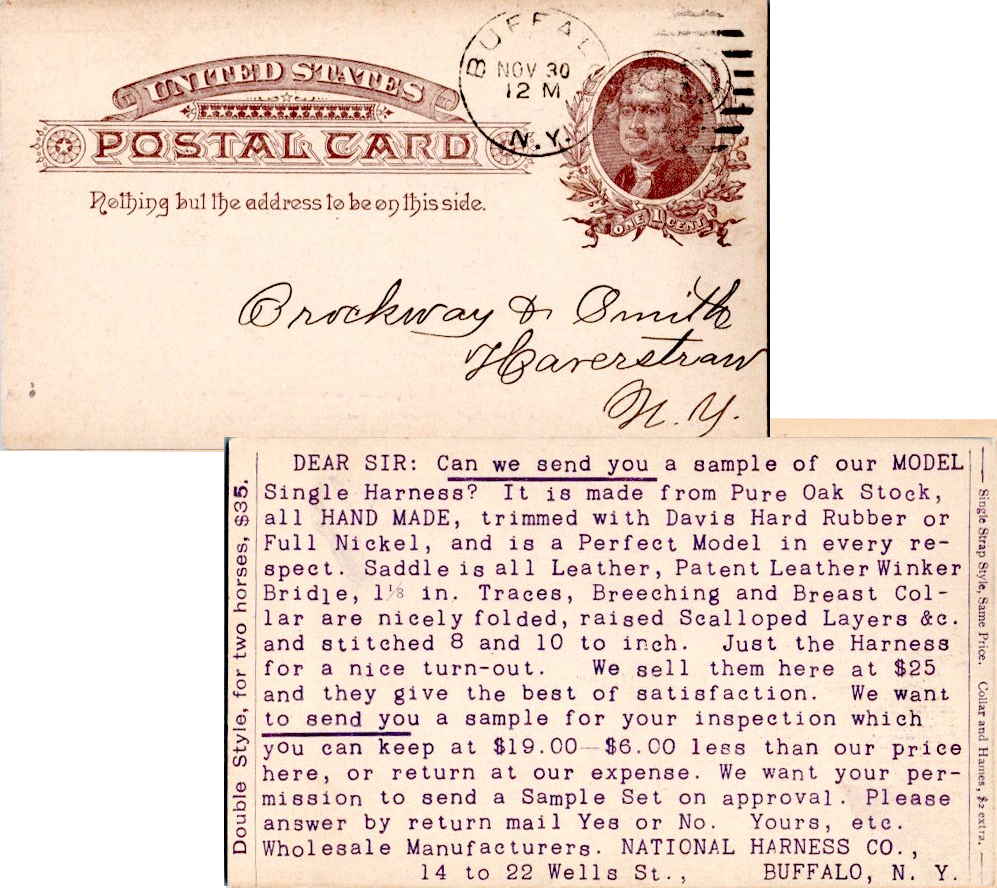 UNITED STATES
POSTAL CARD
Nothing but the address to be on this side.
BUFFAL
NOV 30
12 M
N.Y.
ONE 1 CENT
Brockway & Smith
Haverstraw
N. Y.
DEAR SIR: Can we send you a sample of our MODEL
Single Harness? It is made from Pure Oak Stock,
all HAND MADE, trimmed with Davis Hard Rubber or
Full Nickel, and is a Perfect Model in every re-
spect. Saddle is all Leather, Patent Leather Winker
Bridle, 1 1/8 in. Traces, Breeching and Breast Col-
lar are nicely folded, raised Scalloped Layers &c.
and stitched 8 and 10 to inch. Just the Harness
for a nice turn-out. We sell them here at $25
and they give the best of satisfaction. We want
to send you a sample for your inspection which
you can keep at $19.00—$6.00 less than our price
here, or return at our expense. We want your per-
mission to send a Sample Set on approval. Please
answer by return mail Yes or No. Yours, etc.
Wholesale Manufacturers. NATIONAL HARNESS CO.,
14 to 22 Wells St., BUFFALO, N. Y.
Double Style, for two horses, $35.
Single Strap Style, Same Price. Collar and Hames, $2 extra.